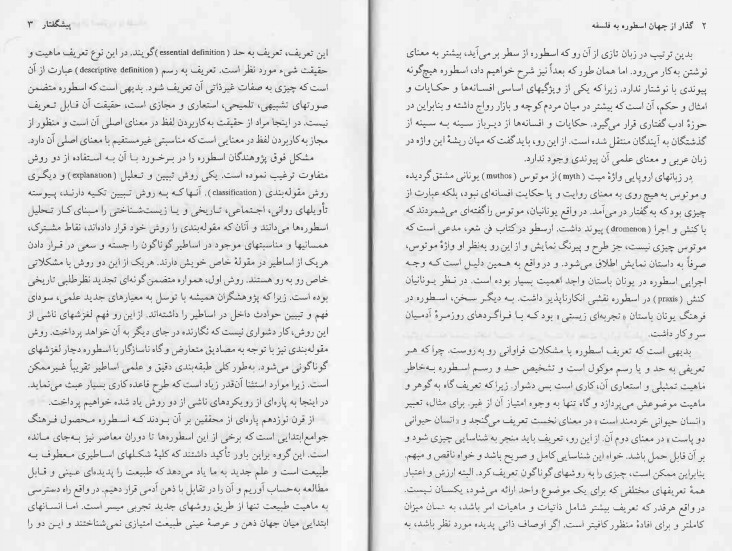 ۲ گذار از جهان اسطوره به فلسفه
بدین ترتیب در زبان تازی از آن رو که اسطوره از سطر بر می‌آید، بیشتر به معنای
نوشتن به‌کار می‌رود. اما همان طور که بعداً نیز شرح خواهیم داد، اسطوره هیچ‌گونه
پیوندی با نوشتار ندارد. زیرا که یکی از ویژگیهای اساسی افسانه‌ها و حکایات و
امثال و حکم، آن است که بیشتر در میان مردم کوچه و بازار رواج داشته و بنابراین در
حوزهٔ ادب گفتاری قرار می‌گیرد. حکایات و افسانه‌ها از دیرباز سینه به سینه از
گذشتگان به آیندگان منتقل شده است. از این رو، باید گفت که میان ریشهٔ این واژه در
زبان عربی و معنای علمی آن پیوندی وجود ندارد.
در زبانهای اروپایی واژهٔ میت (myth) از موتوس (muthos) یونانی مشتق گردیده
و موتوس به هیچ روی به معنای روایت و یا حکایت افسانه‌ای نبود، بلکه عبارت از
چیزی بود که به گفتار در می‌آمد. در واقع یونانیان، موتوس را گفته‌ای می‌شمردند که
با کنش و اجرا (dromenon) پیوند داشت. ارسطو در کتاب فن شعر، مدعی است که
موتوس چیزی نیست، جز طرح و پیرنگ نمایش و از این رو به‌نظر او واژهٔ موتوس،
صرفاً به داستان نمایش اطلاق می‌شود. و در واقع به همین دلیل است که وجه
اجرایی اسطوره در یونان باستان واجد اهمیت بسیار بوده است. در نظر یونانیان
کنش (praxis) در اسطوره نقشی انکارناپذیر داشت. به دیگر سخن، اسطوره در
فرهنگ یونان باستان «تجربه‌ای زیستی» بود که با فراگردهای روزمرهٔ آدمیان
سر و کار داشت.
بدیهی است که تعریف اسطوره با مشکلات فراوانی رو به روست. چرا که هر
تعریفی به حد و یا رسم موکول است و تشخیص حد و رسم اسطوره به‌خاطر
ماهیت تمثیلی و استعاری آن، کاری است بس دشوار. زیرا که تعریف گاه به گوهر و
ماهیت موضوعش می‌پردازد و گاه تنها به وجوه امتیاز آن از غیر. برای مثال، تعبیر
«انسان حیوانی خردمند است» در معنای نخست تعریف می‌گنجد و «انسان حیوانی
دو پاست» در معنای دوم آن. از این رو، تعریف باید منجر به شناسایی چیزی شود و
بر آن قابل حمل باشد. خواه این شناسایی کامل و صریح باشد و خواه ناقص و مبهم.
بنابراین ممکن است، چیزی را به روشهای گوناگون تعریف کرد. البته ارزش و اعتبار
همهٔ تعریفهای مختلفی که برای یک موضوع واحد ارائه می‌شود، یکسان نیست.
در واقع هرقدر که تعریف بیشتر شامل ذاتیات و ماهیات امر باشد، به همان میزان
کاملتر و برای افادهٔ منظور کافیتر است. اگر اوصاف ذاتی پدیده مورد نظر باشد، به
پیشگفتار ۳
این تعریف، تعریف به حد (essential definition) گویند. در این نوع تعریف ماهیت و
حقیقت شیء مورد نظر است. تعریف به رسم (descriptive definition) عبارت از آن
است که چیزی به صفات غیرذاتی آن تعریف شود. بدیهی است که اسطوره متضمن
صورتهای تشبیهی، تلمیحی، استعاری و مجازی است، حقیقت آن قابل تعریف
نیست. در اینجا مراد از حقیقت به‌کاربردن لفظ در معنای اصلی آن است و منظور از
مجاز به‌کاربردن لفظ در معنایی است که مناسبتی غیرمستقیم با معنای اصلی آن دارد.
مشکل فوق پژوهندگان اسطوره را در برخورد با آن به استفاده از دو روش
متفاوت ترغیب نموده است. یکی روش تبیین و تعلیل (explanation) و دیگری
روش مقوله‌بندی (classification). آنها که به روش تبیین تکیه دارند، پیوسته
تأویلهای روانی، اجتماعی، تاریخی و یا زیست‌شناختی را مبنای کار تحلیل
اسطوره‌ها می‌دانند و آنان که مقوله‌بندی را روش خود قرار داده‌اند، نقاط مشترک،
همسانیها و مناسبتهای موجود در اساطیر گوناگون را جسته و سعی در قرار دادن
هریک از اساطیر در مقولهٔ خاص خویش دارند. هریک از این دو روش با مشکلاتی
خاص رو به رو هستند. روش اول، همواره متضمن گونه‌ای تجدید نظرطلبی تاریخی
بوده است. زیرا که پژوهشگران همیشه با توسل به معیارهای جدید علمی، سودای
فهم و تبیین حوادث داخل در اساطیر را داشته‌اند. از این رو فهم لغزشهای ناشی از
این روش، کار دشواری نیست که نگارنده در جای دیگر به آن خواهد پرداخت. روش
مقوله‌بندی نیز با توجه به مصادیق متعارض و گاه ناسازگار با اسطوره دچار لغزشهای
گوناگونی می‌شود. به‌طور کلی طبقه‌بندی دقیق و علمی اساطیر تقریباً غیرممکن
است. زیرا موارد استثنا آن‌قدر زیاد است که طرح قاعده کاری بسیار عبث می‌نماید.
در اینجا به پاره‌ای از رویکردهای ناشی از دو روش یاد شده خواهیم پرداخت.
از قرن نوزدهم پاره‌ای از محققین بر آن بودند که اسطوره محصول فرهنگ
جوامع ابتدایی است که برخی از این اسطوره‌ها تا دوران معاصر نیز به‌جای مانده
است. این گروه براین باور تأکید داشتند که کلیهٔ شکلهای اساطیری معطوف به
طبیعت است و علم جدید به ما یاد می‌دهد که طبیعت را پدیده‌ای عینی و قابل
مطالعه به‌حساب آوریم و آن را در تقابل با ذهن آدمی قرار دهیم. در واقع راه دسترسی
به ماهیت طبیعت تنها از طریق روشهای جدید تجربی میسر است. اما انسانهای
ابتدایی میان جهان ذهن و عرصهٔ عینی طبیعت امتیازی نمی‌شناختند و این دو را